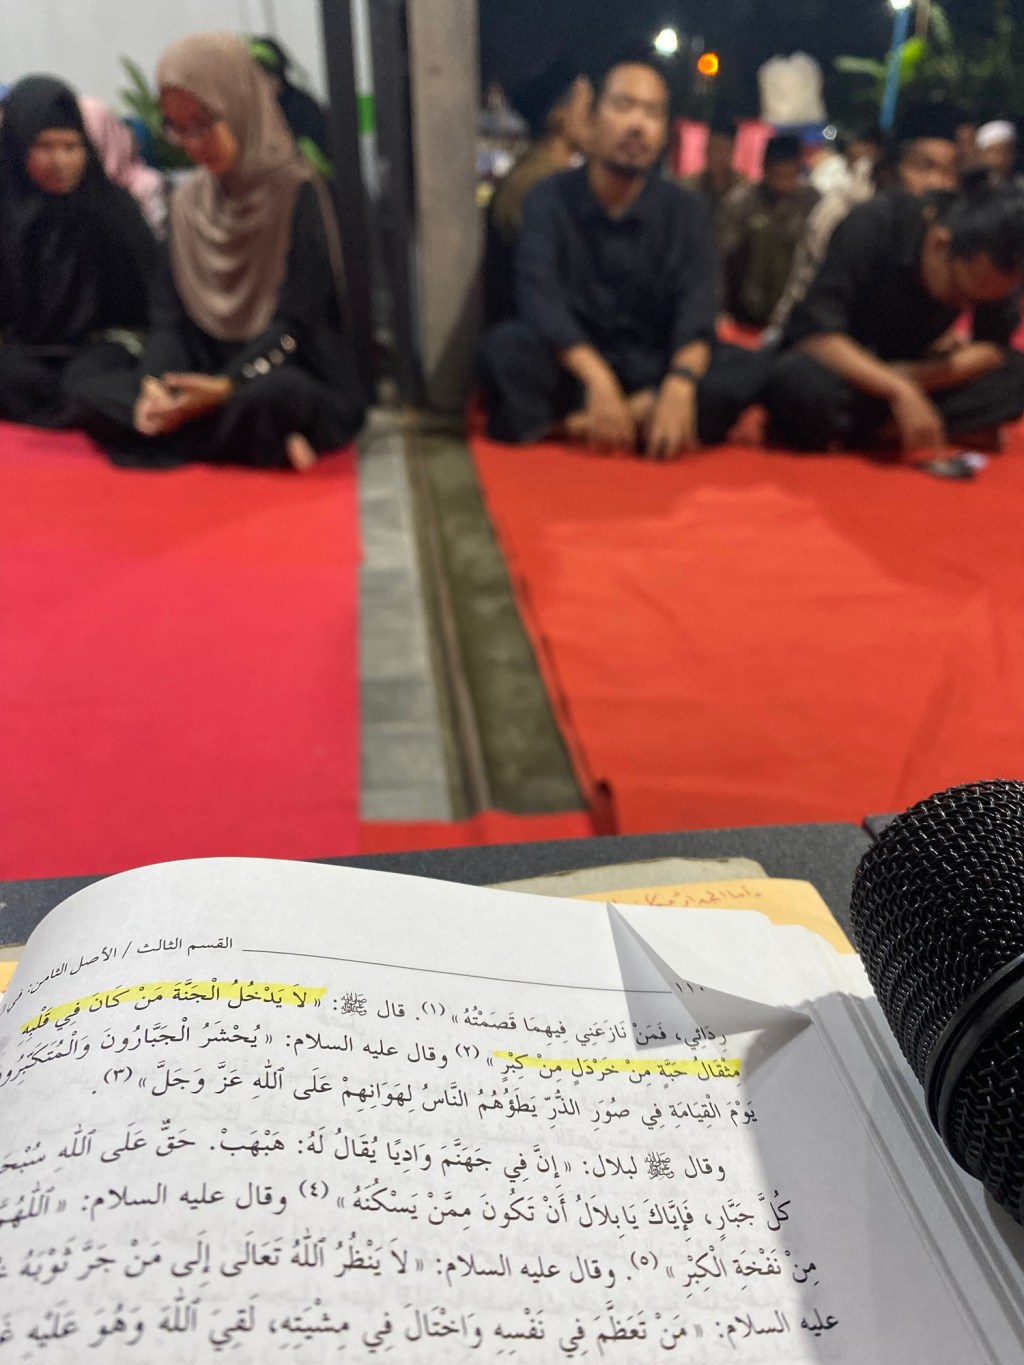 القسم الثالث / الأصل الثامن: في
١١٠
رِدَائِي، فَمَنْ نَازَعَنِي فِيهِمَا قَصَمْتُهُ» (١). قال ﷺ: «لاَ يَدْخُلُ الْجَنَّةَ مَنْ كَانَ فِي قَلْبِهِ
مِثْقَالُ حَبَّةٍ مِنْ خَرْدَلٍ مِنْ كِبْرٍ» (٢) وقال عليه السلام: «يُحْشَرُ الْجَبَّارُونَ وَالْمُتَكَبِّرُونَ
يَوْمَ الْقِيَامَةِ فِي صُوَرِ الذَّرِّ يَطَؤُهُمُ النَّاسُ لِهَوَانِهِمْ عَلَى ٱللهِ عَزَّ وَجَلَّ» (٣).
وقال ﷺ لبلال: «إِنَّ فِي جَهَنَّمَ وَادِيًا يُقَالُ لَهُ: هَبْهَبْ. حَقٌّ عَلَى ٱللهِ
كُلَّ جَبَّارٍ، فَإِيَّاكَ يَابِلاَلُ أَنْ تَكُونَ مِمَّنْ يَسْكُنَهُ» (٤) وقال عليه السلام: «ٱللّٰهُمَّ
مِنْ نَفْخَةِ الْكِبْرِ» (٥). وقال عليه السلام: «لاَ يَنْظُرُ ٱللهُ تَعَالَى إِلَى مَنْ جَرَّ ثَوْبَهُ
عليه السلام: «مَنْ تَعَظَّمَ فِي نَفْسِهِ وَاخْتَالَ فِي مِشْيَتِهِ، لَقِيَ ٱللهَ وَهُوَ عَلَيْهِ